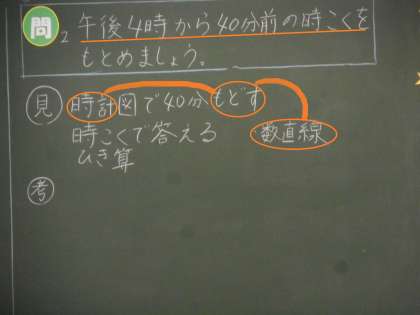 問2 午後4時から40分前の時こくを
もとめましょう。
見 時計図で40分もどす
時こくで答える 数直線
ひき算
考